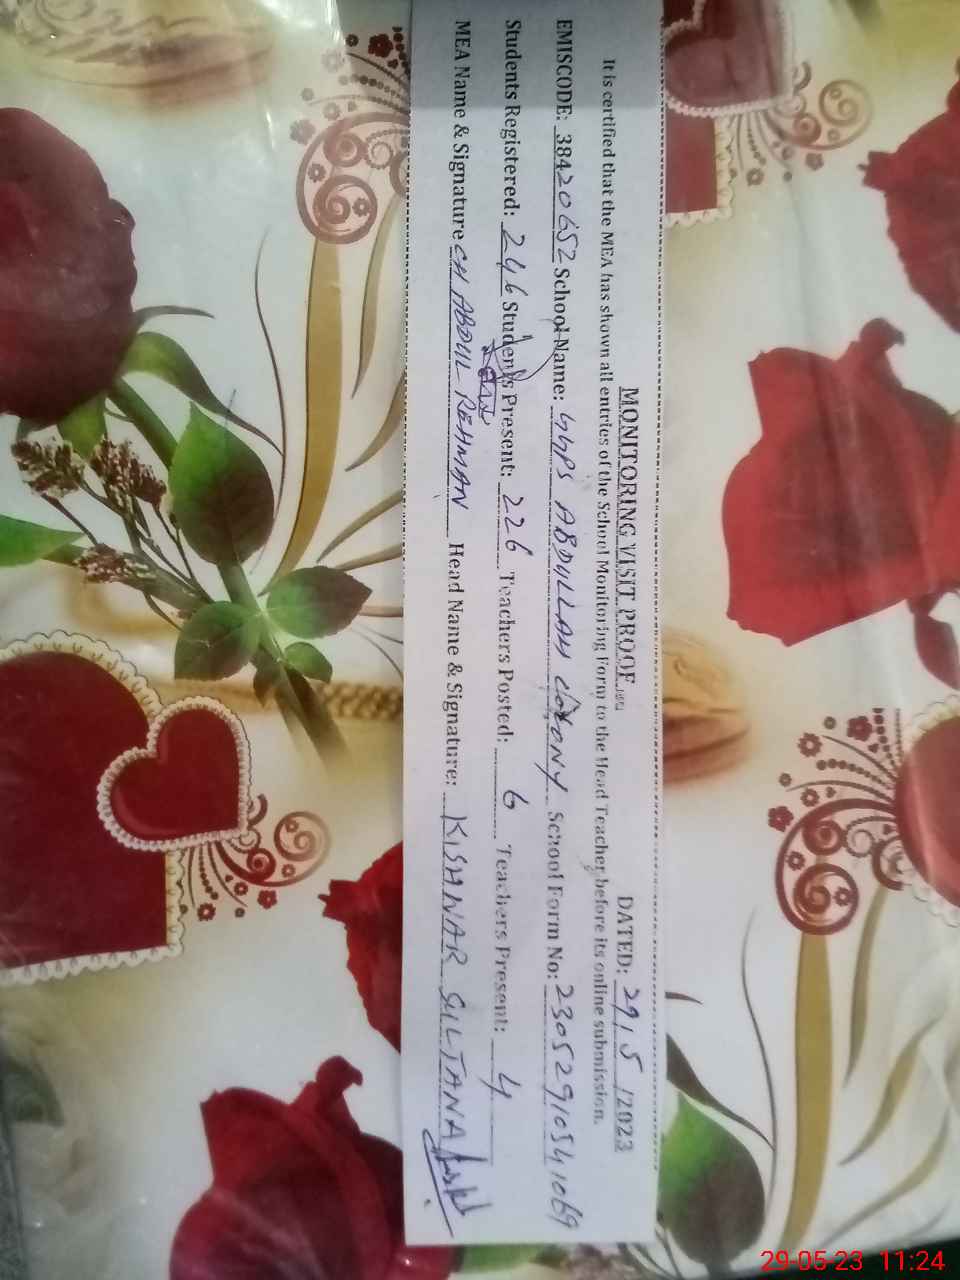 MONITORING VISIT PROOF DATED: 29/5/2023
It is certified that the MEA has shown all entries of the School Monitoring Form to the Head Teacher before its online submission.
EMISCODE: 38420652 School Name: GGPS ABDULLAH COLONY School Form No: 23052910541069
Students Registered: 246 Students Present: 226 Teachers Posted: 6 Teachers Present: 4
MEA Name & Signature CH ABDUL REHMAN Head Name & Signature: KISHWAR SULTANA
29-05-23 11:24